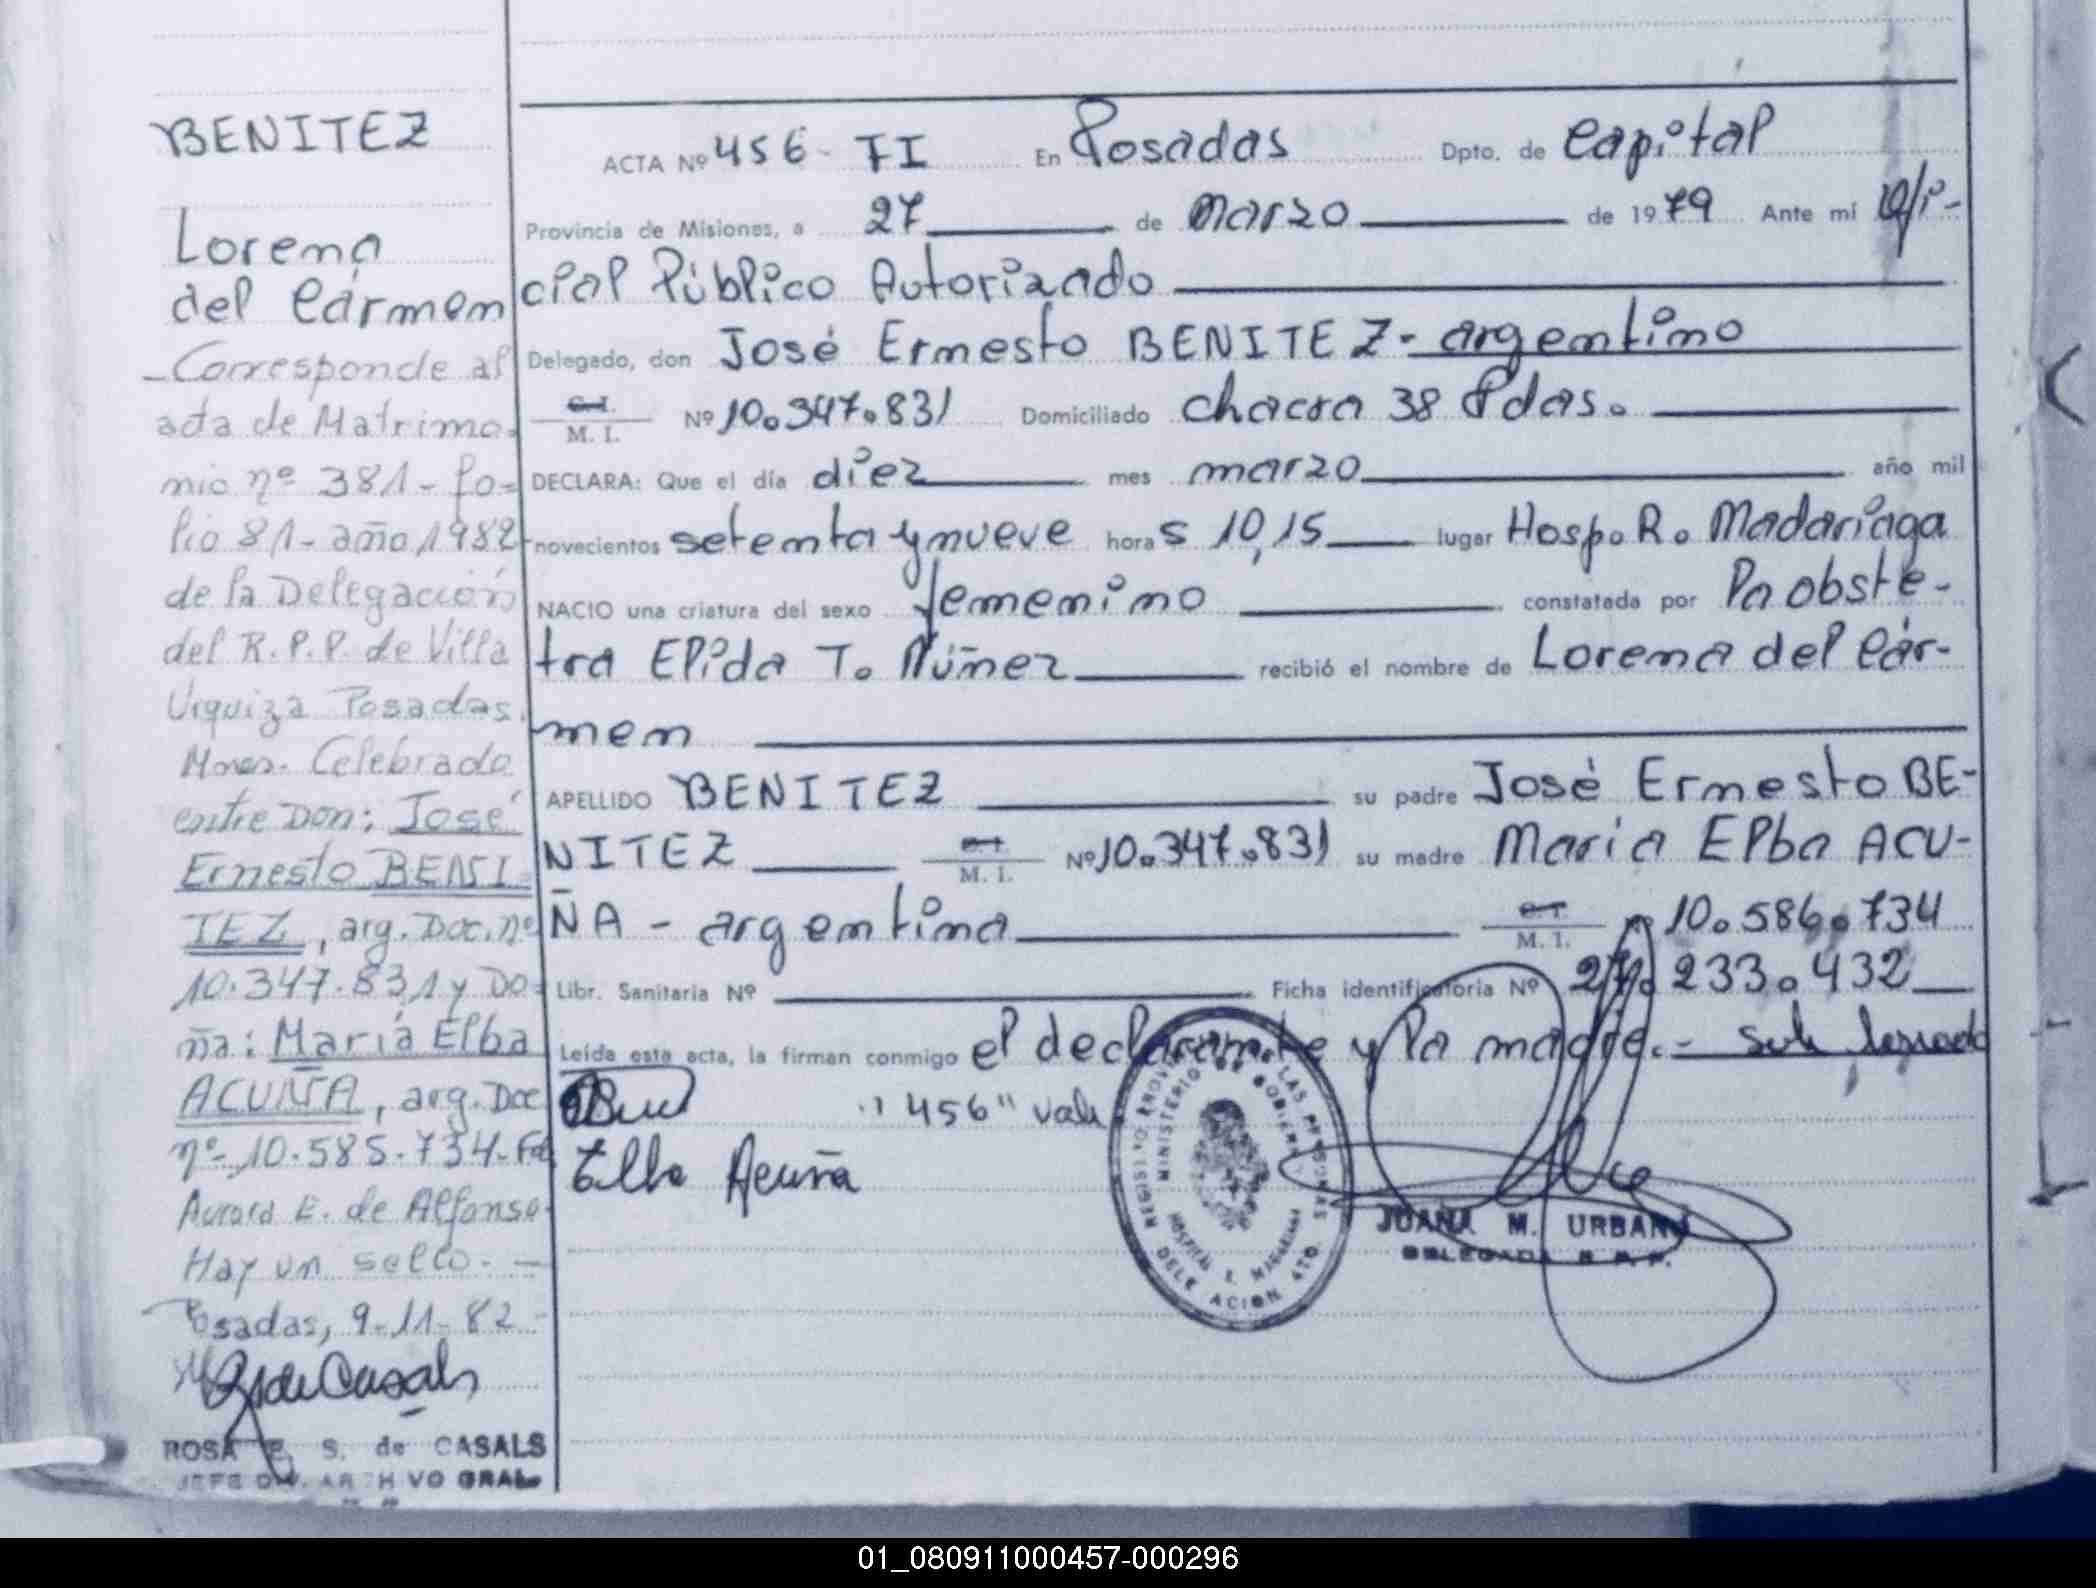 BENITEZ
Lorena
del Cármen
- Corresponde al
acta de Matrimo-
nio nº 381 - fo=
lio 81 - año 1982
de la Delegación
del R.P.P. de Villa
Urquiza Posadas.
Mnes. Celebrado
entre Don: José
Ernesto BENI=
TEZ, arg. Doc. nº
10.347.831 y Do=
ña: María Elba
ACUÑA, arg. Doc
nº 10.585.734 - Fdo
Aurora E. de Alfonso.
Hay un sello. -
Posadas, 9-11-82 -
R de Casals
ROSA E. S. de CASALS
JEFE DIV. ARCHIVO GRAL.
ACTA Nº 456 - TI En Posadas Dpto. de Capital
Provincia de Misiones, a 27 de Marzo de 1979 Ante mí Ofi-
cial Público Autorizado
Delegado, don José Ernesto BENITEZ - argentino
C.I. M. I. Nº 10.347.831 Domiciliado Chacra 38 Pdas.
DECLARA: Que el día diez mes marzo año mil
novecientos setenta y nueve horas 10,15 lugar Hosp. R. Madariaga
NACIO una criatura del sexo femenino constatada por la obste-
tra Elida T. Núñez recibió el nombre de Lorena del Cár-
men
APELLIDO BENITEZ su padre José Ernesto BE-
NITEZ C.I. M. I. Nº 10.347.831 su madre Maria Elba ACU-
ÑA - argentina C.I. M. I. 10.586.734
Libr. Sanitaria Nº Ficha identificatoria Nº 27.233.432
Leída esta acta, la firman conmigo el declarante y la madre. -
"456" vale
Elba Acuña
REGISTRO PROVINCIAL DE LAS PERSONAS
MINISTERIO DE GOBIERNO
HOSPITAL R. MADARIAGA
DELEGACION 4TO.
JUANA M. URBANO
DELEGADA R. P. P.
01_080911000457-000296